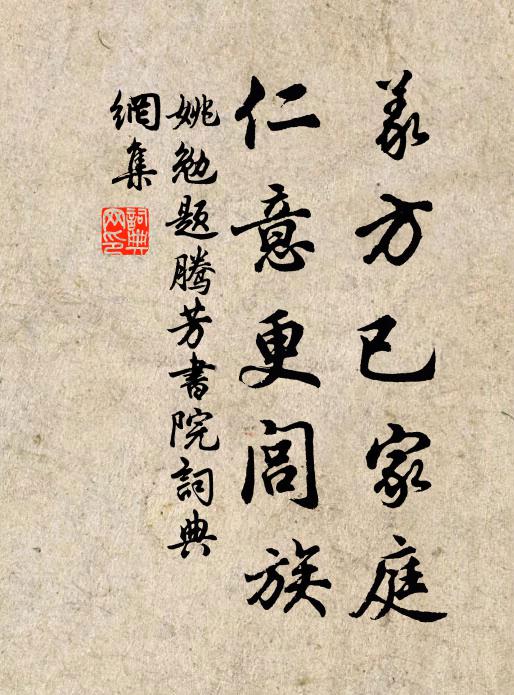 義方已家庭
仁意更閭族
姚勉題騰芳書院詞典
網集
詞典网印